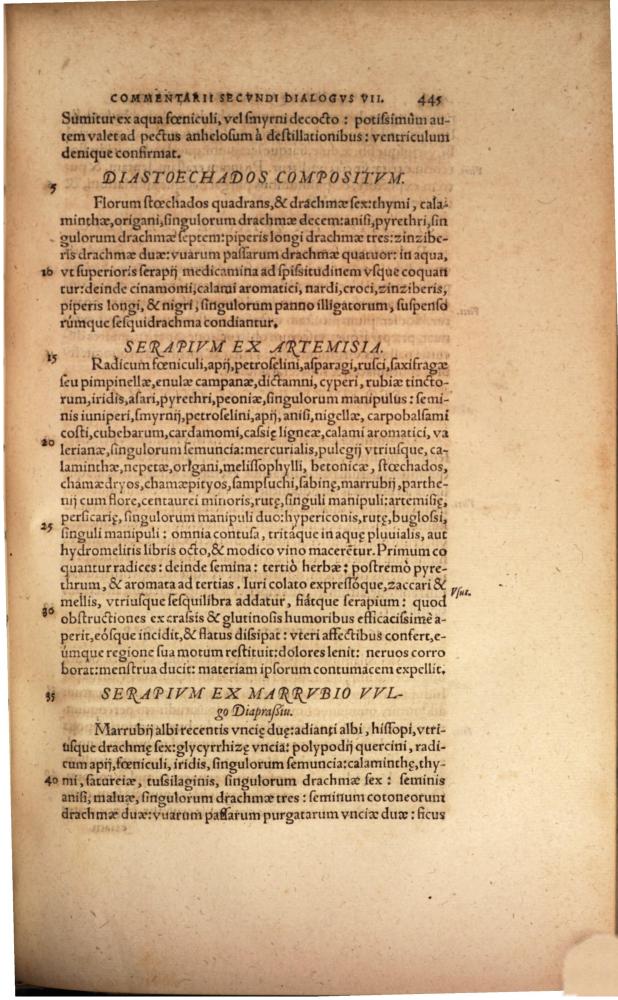 COMMENTARII SECVNDI DIALOGVS VII. 445
Sumitur ex aqua fœniculi, vel smyrni decocto : potissimùm au-
tem valet ad pectus anhelosum à destillationibus : ventriculum
denique confirmat.
5 DIASTOECHADOS COMPOSITVM.
Florum stœchados quadrans, & drachmæ sex: thymi, cala-
minthæ, origani, singulorum drachmæ decem: anisi, pyrethri, sin
gulorum drachmæ septem: piperis longi drachmæ tres: zinzibe-
ris drachmæ duæ: vuarum passarum drachmæ quatuor: in aqua,
10 vt superioris serapij medicamina ad spissitudinem vsque coquan
tur: deinde cinamomi, calami aromatici, nardi, croci, zinziberis,
piperis longi, & nigri, singulorum panno illigatorum, suspenso
rúmque sesquidrachma condiantur.
SERAPIVM EX ARTEMISIA.
15 Radicum fœniculi, apij, petroselini, asparagi, rusci, saxifragæ
seu pimpinellæ, enulæ campanæ, dictamni, cyperi, rubiæ tincto-
rum, iridis, asari, pyrethri, peoniæ, singulorum manipulus : semi-
nis iuniperi, smyrnij, petroselini, apij, anisi, nigellæ, carpobalsami
costi, cubebarum, cardamomi, cassię ligneæ, calami aromatici, va
20 lerianæ, singulorum semuncia: mercurialis, pulegij vtriusque, ca-
laminthæ, nepetæ, origani, melissophylli, betonicæ, stœchados,
chamædryos, chamæpityos, sampsuchi, sabinę, marrubij, parthe-
nij cum flore, centaurei minoris, rutę, singuli manipuli: artemisię,
persicarię, singulorum manipuli duo: hypericonis, rutę, buglossi,
25 singuli manipuli : omnia contusa, tritáque in aquę pluuialis, aut
hydromelitis libris octo, & modico vino macerẽtur. Primum co
quantur radices : deinde semina: tertiò herbæ: postremò pyre-
thrum, & aromata ad tertias. Iuri colato expressóque, zaccari &
mellis, vtriusque sesquilibra addatur, fiátque serapium : quod Vsus.
30 obstructiones ex crassis & glutinosis humoribus efficacissimè a-
perit, eósque incidit, & flatus dissipat : vteri affectibus confert, e-
úmque regione sua motum restituit: dolores lenit: neruos corro
borat: menstrua ducit: materiam ipsorum contumacem expellit.
35 SERAPIVM EX MARRVBIO VVL-
go Diaprassiu.
Marrubij albi recentis vncię duę: adianti albi, hissopi, vtri-
usque drachmę sex: glycyrrhizę vncia: polypodij quercini, radi-
cum apij, fœniculi, iridis, singulorum semuncia: calaminthę, thy-
40 mi, satureiæ, tussilaginis, singulorum drachmæ sex : seminis
anisi, maluæ, singulorum drachmæ tres : seminum cotoneorum
drachmæ duæ: vuarum passarum purgatarum vnciæ duæ : ficus